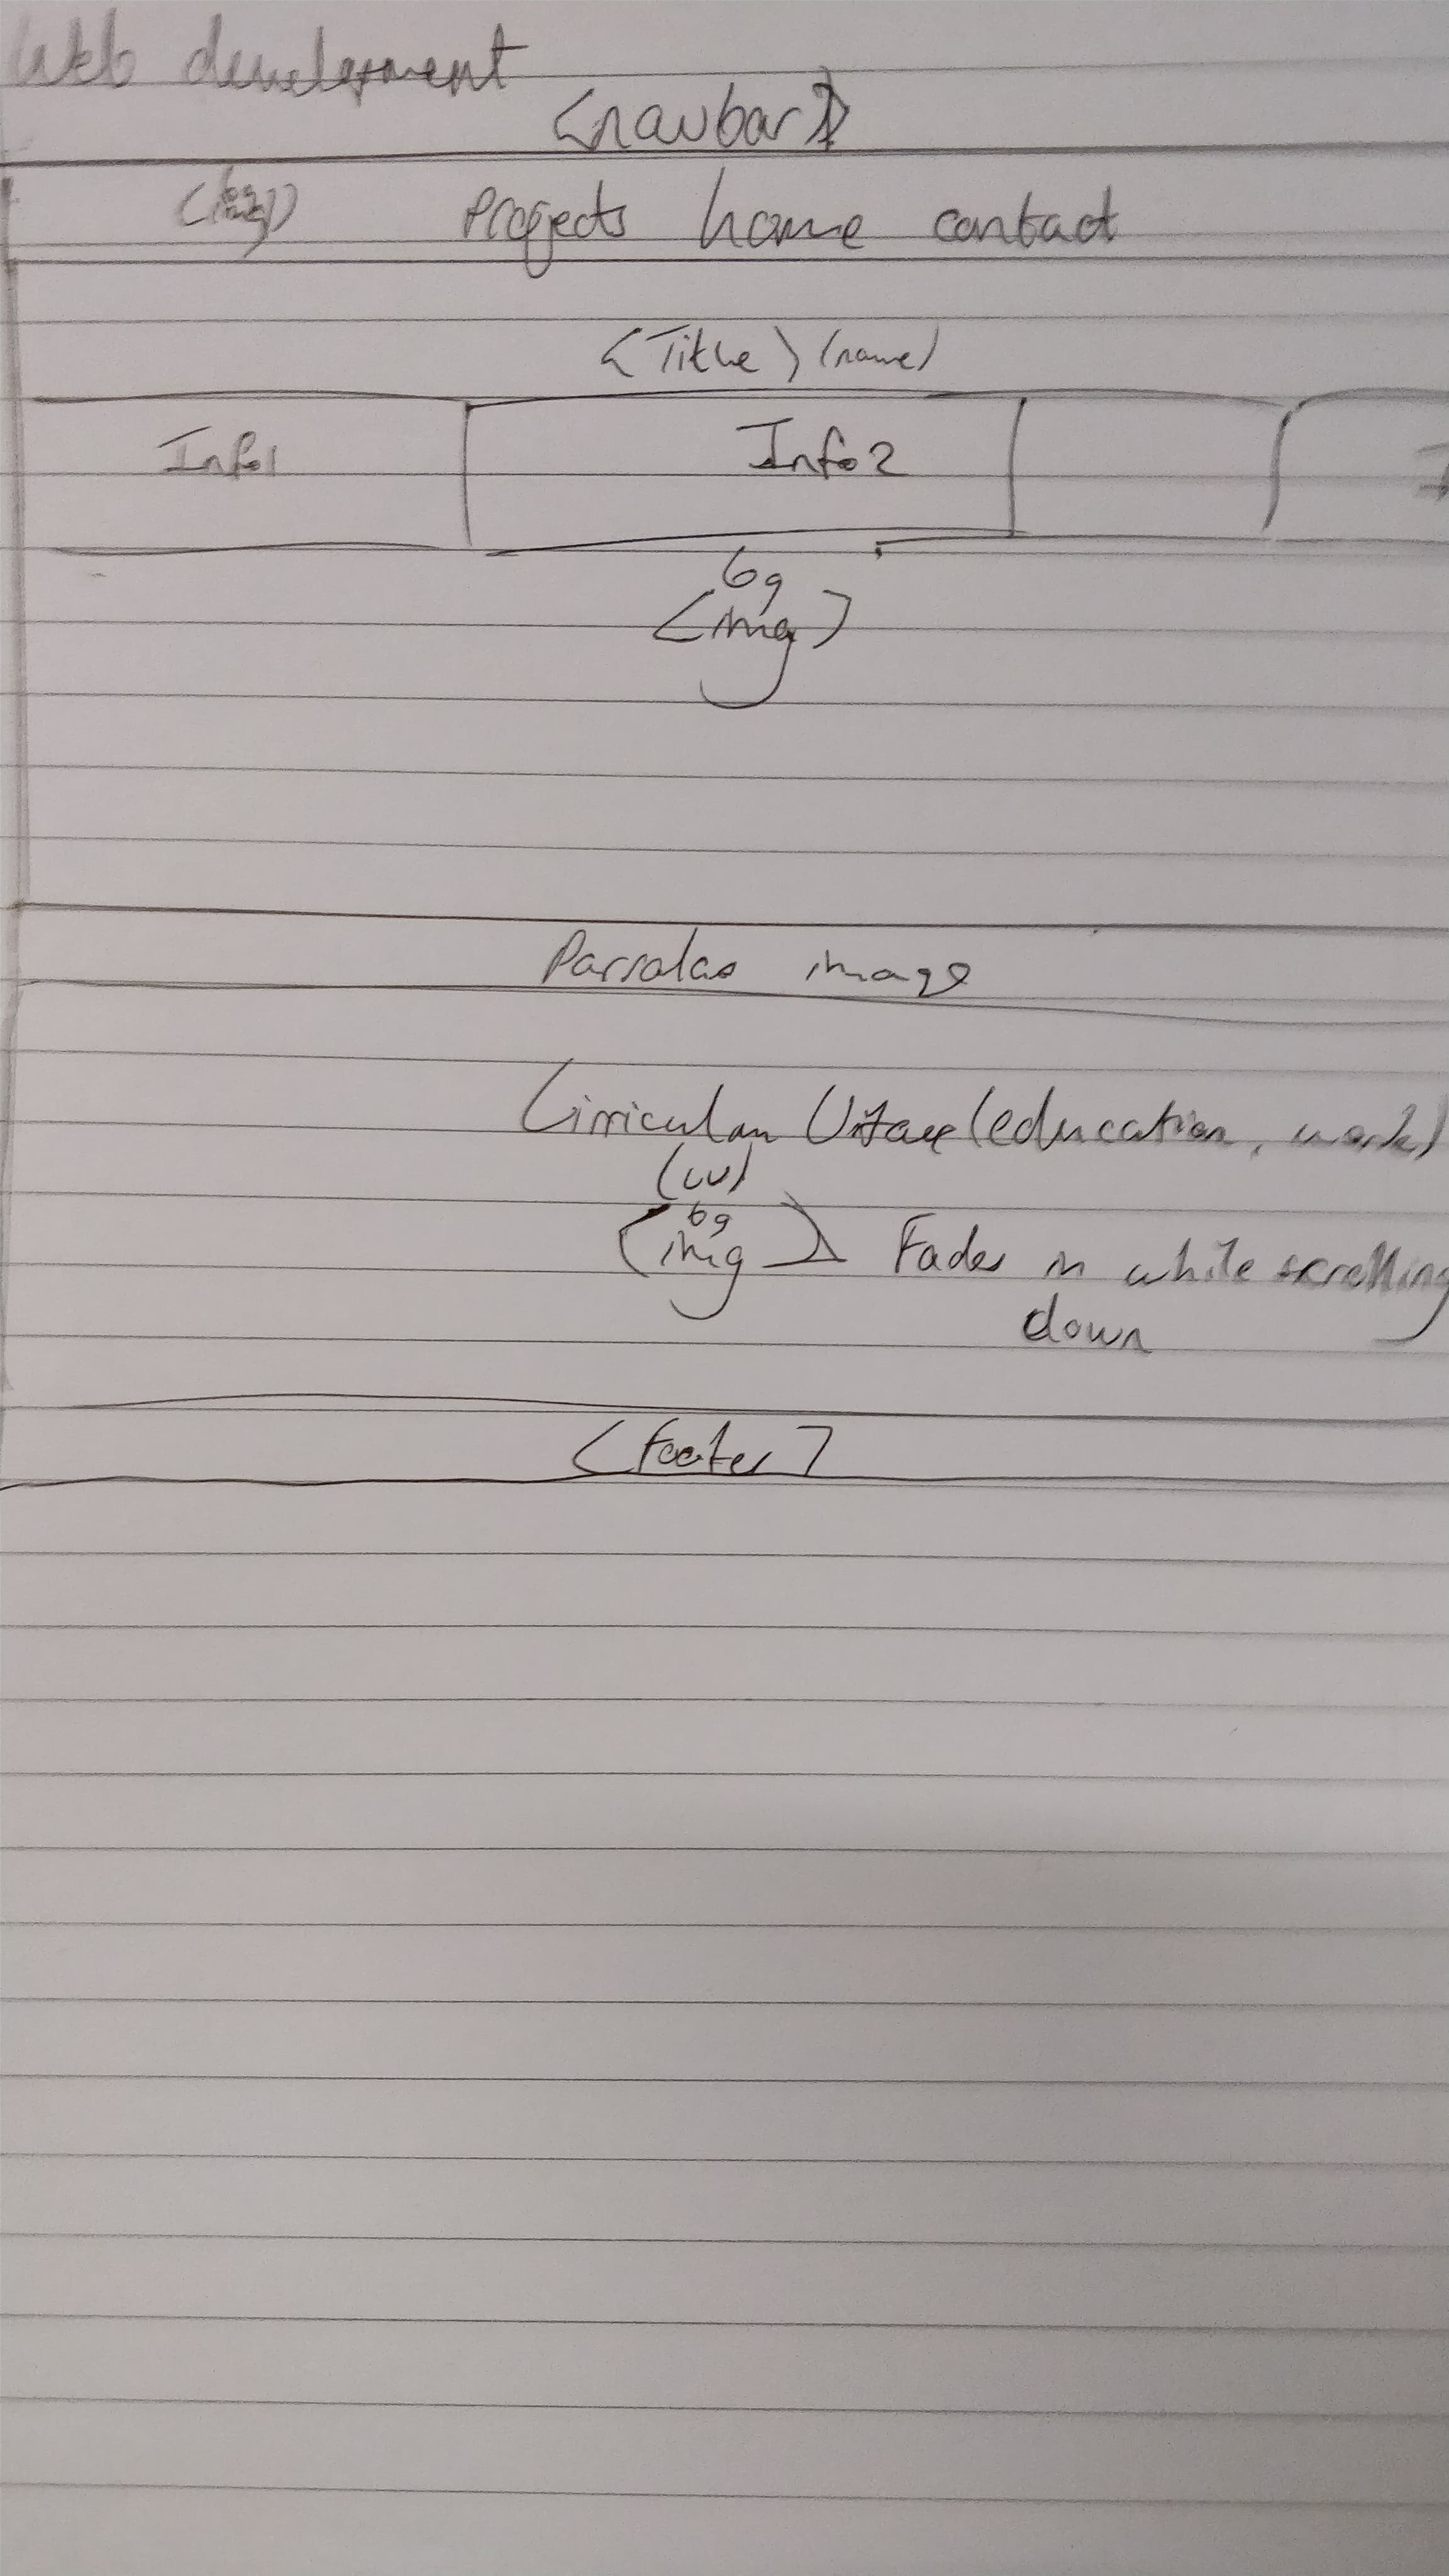 Web development
<navbar>
Projects home contact
<Title> (name)
Info1 Info2 I
bg
<img>
Parralas image
Cirriculum Vitae (education, work)
(cv)
bg
<img> Fades in while scrolling
down
<footer>